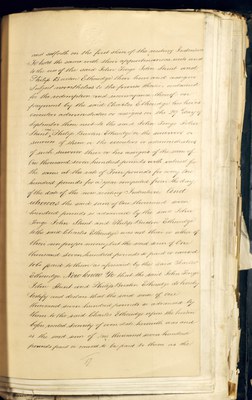 and setforth in the first Item of the writing
To hold the same with their appurtenances unto and
to the use of the said John Dodge John Hurd and
Philip Burden Ethredge their heirs and assigns
Subject nevertheless to the proviso therein contained
for the redemption and reconveyance thereof on
payment by the said Charles Ethredge his heirs
executors administrators or assigns on the day of
September then next to the said John Dodge John
Hurd Philip Burden Ethredge or the survivors or
survivor of them or the executors or administrators
of such survivor their or his assigns of the sum of
One thousand seven hundred pounds with interest for
the same at the rate of Four pounds for every one
hundred pounds for a year computed from the day
of the date of the now reciting Indenture And
whereas the said sum of One thousand seven
hundred pounds so advanced by the said John
Dodge John Hurd and Philip Burden Ethredge
to the said Charles Ethredge was not their or either of
their own proper money but the said sum of One
thousand seven hundred pounds is and so secured
to be paid to them as aforesaid by the said Charles
Ethredge Now know Ye that the said John Dodge
John Hurd and Philip Burden Ethredge do hereby
testify and declare that the said sum of One
thousand seven hundred pounds so advanced by
them to the said Charles Ethredge upon the
security of even date herewith was and
is the said sum of One thousand seven hundred
pounds paid or meant to be paid to them as the